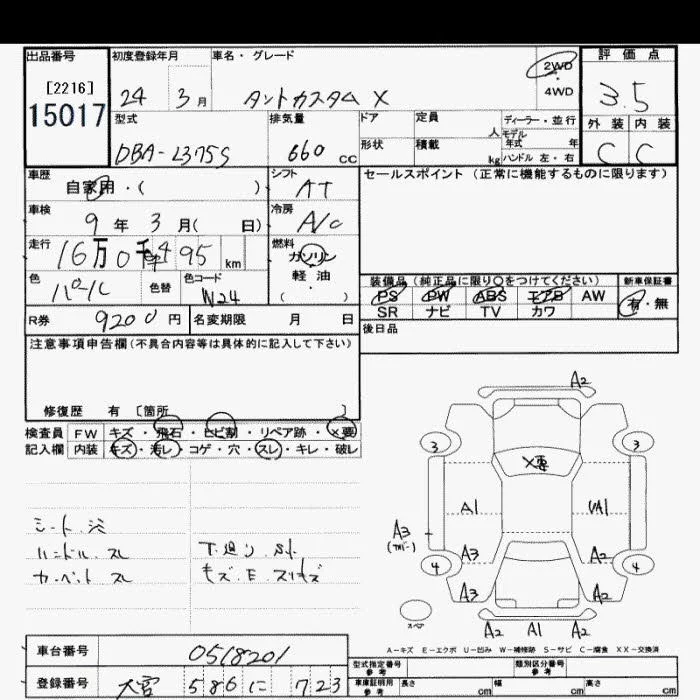 出品番号 初度登録年月 車名・グレード 2WD 評価点
[2216] 4WD
15017 24 3月 タントカスタム X 3.5
型式 排気量 ドア 定員 人 ディーラー・並行 外装 内装
DBA-L375S 660cc 形状 積載 kg モデル年式 年 C C
ハンドル 左・右
車歴 シフト セールスポイント(正常に機能するものに限ります)
自家用・( ) AT
車検 冷房
9年 3月( 日) A/C
走行 燃料
16万0千495km ガソリン
色 色替 色コード 軽油
パール W24 ( )
装備品(純正品に限り○をつけてください) 新車保証書
PS PW ABS エアB AW 有・無
SR ナビ TV カワ
R券 9200円 名変期限 月 日 後日品
注意事項申告欄(不具合内容等は具体的に記入して下さい)
修復歴 有 [箇所 ]
検査員 FW キズ・飛石・ヒビ割・リペア跡・×要
記入欄 内装 キズ・汚レ・コゲ・穴・スレ・キレ・破レ
シート.汚
ハンドル.スレ 下廻り.サビ
カーペット スレ キズ.E.スリキズ
A2
3 3
×要
A1 A1
A3
A3 A2
4 4
A3 A2
スペア
A2 A1 A2
A-キズ E-エクボ U-凹み W-補修跡 S-サビ C-腐食 XX-交換済
車台番号 0518201 型式指定番号 参考 類別区分番号 参考
登録番号 大宮 586 に 723 車庫証明用 参考 長さ cm 幅 cm 高さ cm